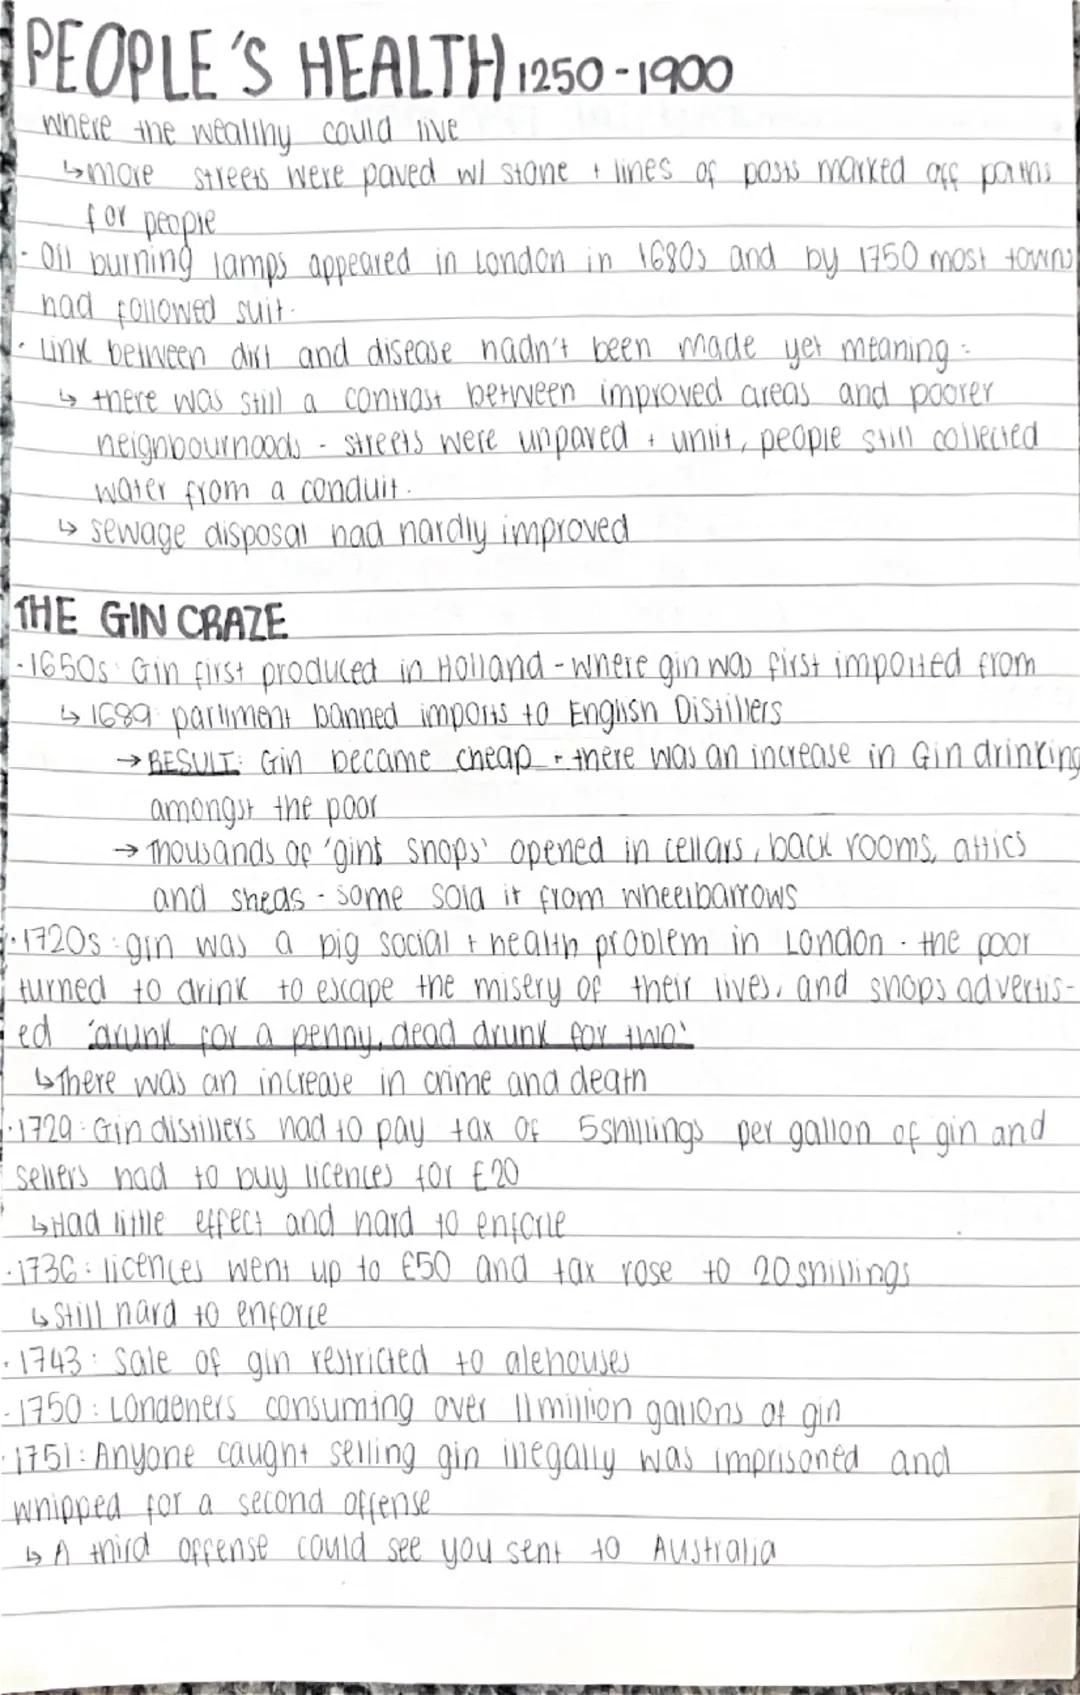 PEOPLE'S HEALTH 1250-1900
where the wealthy could live
↳more streets were paved w/ stone + lines of posts marked off paths
for people
- Oil burning lamps appeared in London in 1680s and by 1750 most towns
had followed suit.
· Link between dirt and disease hadn't been made yet meaning:
↳ there was still a contrast between improved areas and poorer
neighbourhoods - streets were unpaved + unlit, people still collected
water from a conduit.
↳ sewage disposal had hardly improved
THE GIN CRAZE
-1650s: Gin first produced in Holland - where gin was first imported from
↳ 1689: parliment banned imports to English Distillers
→ RESULT: Gin became cheap - there was an increase in Gin drinking
amongst the poor
→ thousands of 'gint shops' opened in cellars, back rooms, attics
and sheds - some sold it from wheelbarrows
·1720s: gin was a big social + health problem in London. the poor
turned to drink to escape the misery of their lives, and shops advertis-
ed 'drunk for a penny, dead drunk for two'
↳There was an increase in crime and death
·1729: Gin distillers had to pay tax of 5shillings per gallon of gin and
sellers had to buy licences for £20
↳Had little effect and hard to enforce
·1736: licences went up to £50 and tax rose to 20 shillings
↳ Still hard to enforce
·1743: Sale of gin restricted to alehouses
-1750: Londoners consuming over 11 million gallons of gin
·1751: Anyone caught selling gin illegally was imprisoned and
whipped for a second offense
↳ A third offense could see you sent to Australia